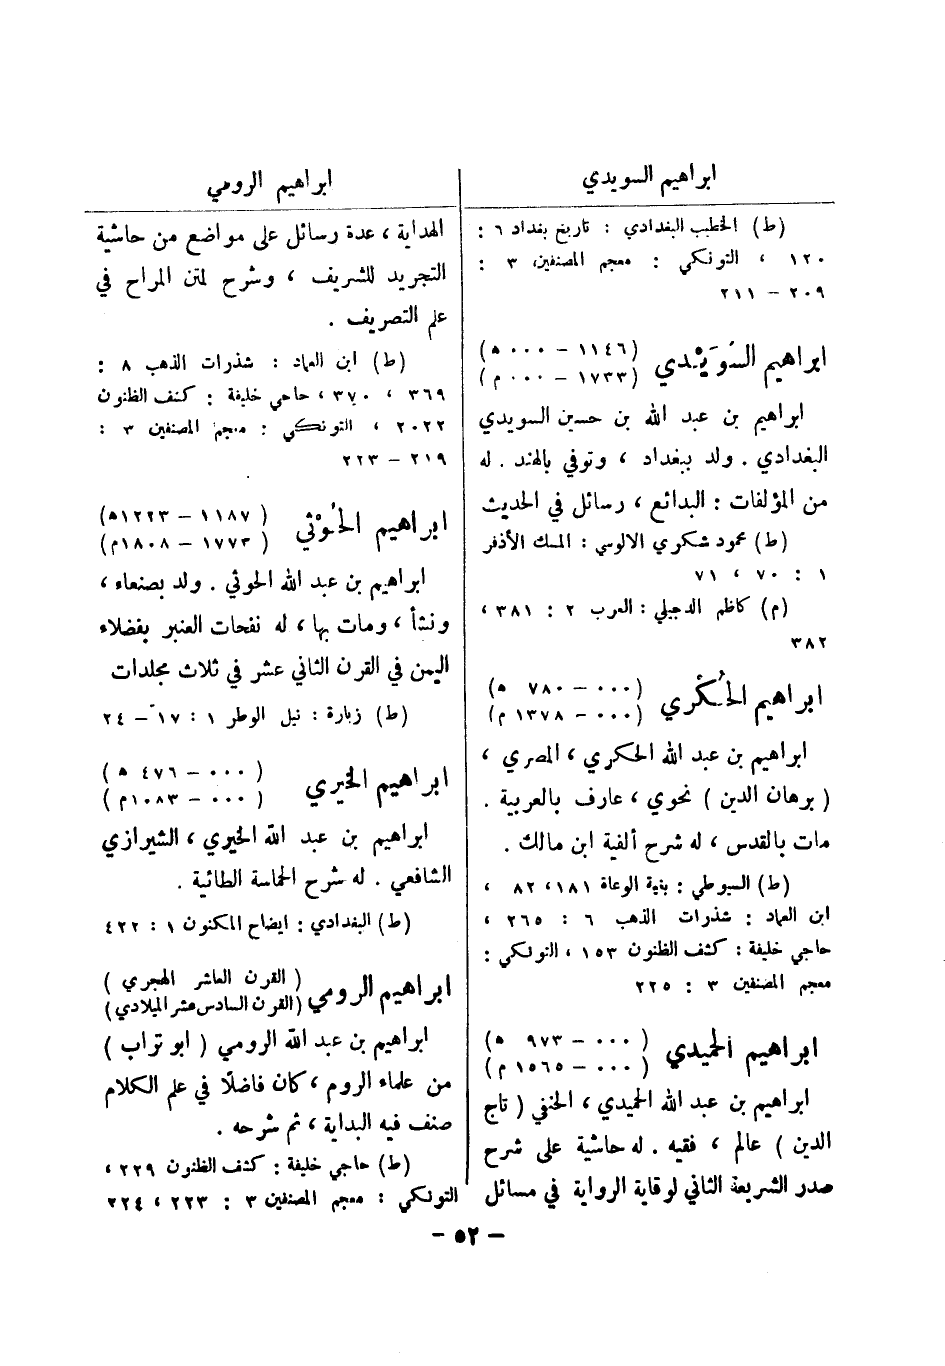 ابراهيم السويدي
(ط) الخطيب البغدادي : تاريخ بغداد ٦ :
١٢٠ ، التونكي : معجم المصنفين ٣ :
٢٠٩ – ٢١١
ابراهيم السُوَيْدي (١١٤٦ – ٠٠٠ ه)
(١٧٣٣ – ٠٠٠ م)
ابراهيم بن عبد الله بن حسين السويدي
البغدادي . ولد ببغداد ، وتوفي بالهند . له
من المؤلفات : البدائع ، رسائل في الحديث
(ط) محمود شكري الالوسي : المسك الأذفر
١ : ٧٠ ، ٧١
(م) كاظم الدجيلي : العرب ٢ : ٣٨١ ،
٣٨٢
ابراهيم الحُكْري (٠٠٠ – ٧٨٠ ه)
(٠٠٠ – ١٣٧٨ م)
ابراهيم بن عبد الله الحكري ، المصري ،
( برهان الدين ) نحوي ، عارف بالعربية .
مات بالقدس ، له شرح ألفية ابن مالك .
(ط) السيوطي : بغية الوعاة ١٨١ ، ٨٢ ،
ابن العماد : شذرات الذهب ٦ : ٢٦٥ ،
حاجي خليفة : كشف الظنون ١٥٣ ، التونكي :
معجم المصنفين ٣ : ٢٢٥
ابراهيم الحميدي (٠٠٠ – ٩٧٣ ه)
(٠٠٠ – ١٥٦٥ م)
ابراهيم بن عبد الله الحميدي ، الحنفي ( تاج
الدين ) عالم ، فقيه . له حاشية على شرح
صدر الشريعة الثاني لوقاية الرواية في مسائل
ابراهيم الرومي
الهداية ، عدة رسائل على مواضع من حاشية
التجريد للشريف ، وشرح لمتن المراح في
علم التصريف .
(ط) ابن العماد : شذرات الذهب ٨ :
٣٦٩ ، ٣٧٠ ، حاجي خليفة : كشف الظنون
٢٠٢٢ ، التونكي : معجم المصنفين ٣ :
٢١٩ – ٢٢٣
ابراهيم الحُوْثي (١١٨٧ – ١٢٢٣ه)
(١٧٧٣ – ١٨٠٨م)
ابراهيم بن عبد الله الحوثي . ولد بصنعاء ،
ونشأ ، ومات بها ، له نفحات العنبر بفضلاء
اليمن في القرن الثاني عشر في ثلاث مجلدات
(ط) زبارة : نيل الوطر ١ : ١٧ – ٢٤
ابراهيم الخبري (٠٠٠ – ٤٧٦ ه)
(٠٠٠ – ١٠٨٣م)
ابراهيم بن عبد الله الخبري ، الشيرازي
الشافعي . له شرح الحماسة الطائية .
(ط) البغدادي : ايضاح المكنون ١ : ٤٢٢
ابراهيم الرومي ( القرن العاشر الهجري )
(القرن السادس عشر الميلادي)
ابراهيم بن عبد الله الرومي ( ابو تراب )
من علماء الروم ، كان فاضلًا في علم الكلام
صنف فيه البداية ، ثم شرحه .
(ط) حاجي خليفة : كشف الظنون ٢٢٩ ،
التونكي : معجم المصنفين ٣ : ٢٢٣ ، ٢٢٤
– ٥٢ –